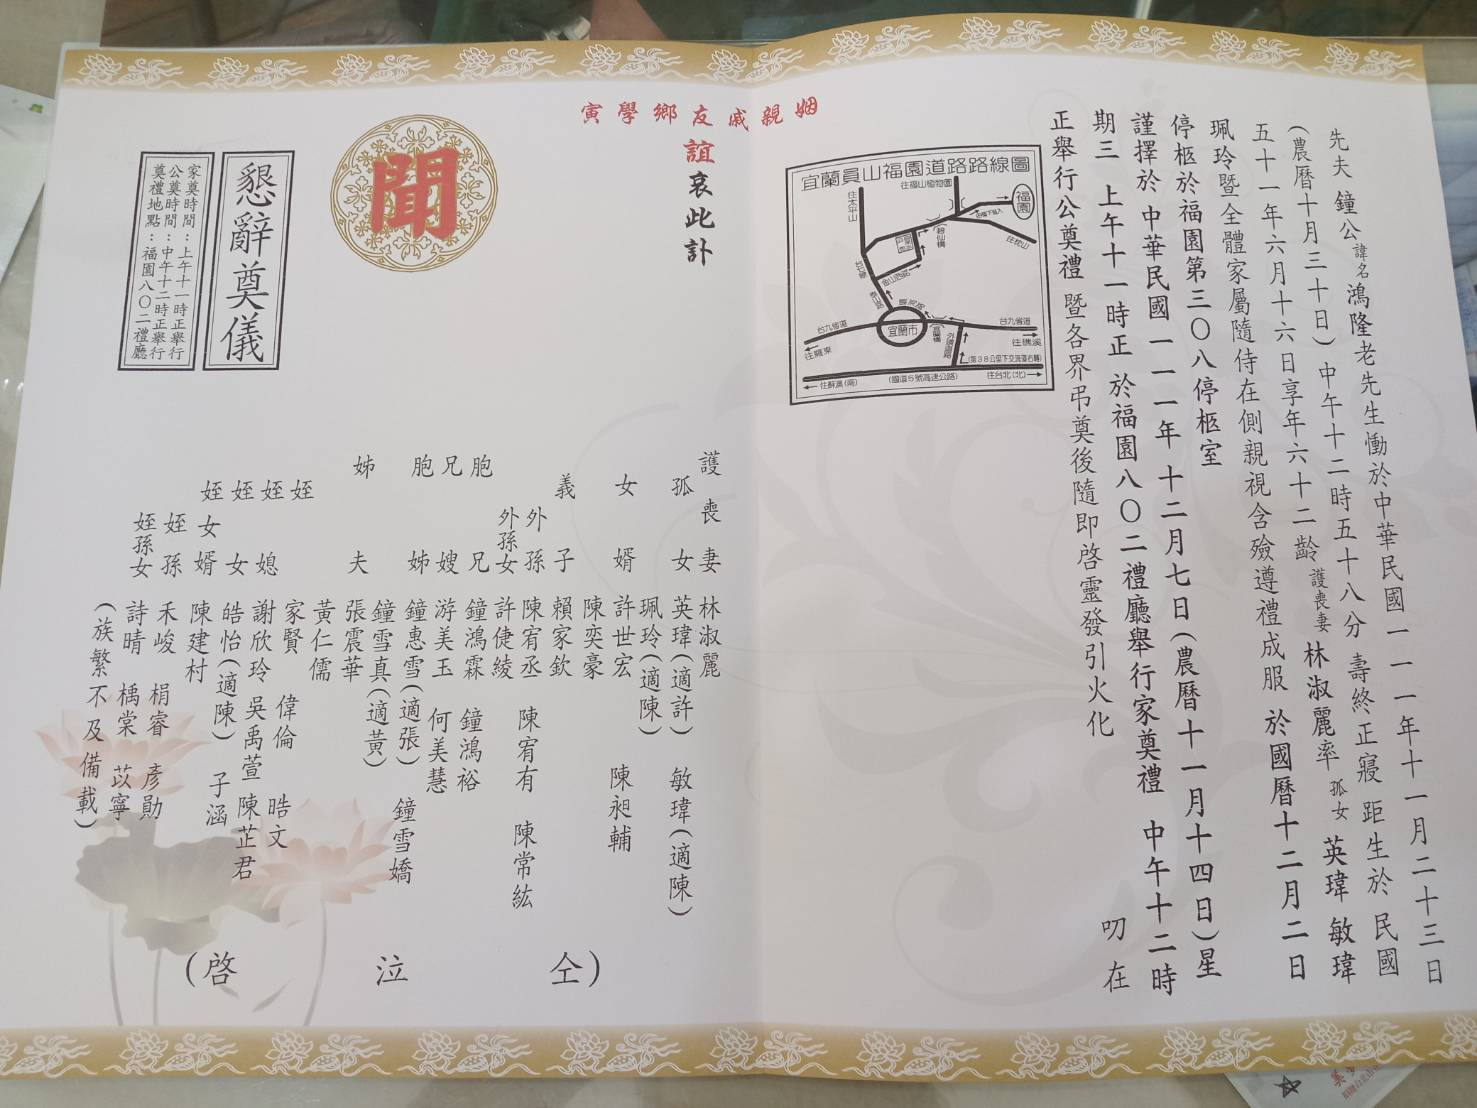 先夫 鐘公諱名鴻隆老先生慟於中華民國一一一年十一月二十三日
(農曆十月三十日)中午十二時五十八分 壽終正寢 距生於 民國
五十一年六月十六日享年六十二齡 護喪妻 林淑麗率 孤女 英瑋 敏瑋
珮玲暨全體家屬隨侍在側親視含殮遵禮成服 於國曆十二月二日
停柩於福園第三〇八停柩室
謹擇於 中華民國一一一年十二月七日(農曆十一月十四日)星
期三 上午十一時正 於福園八〇二禮廳舉行家奠禮 中午十二時
正舉行公奠禮 暨各界弔奠後隨即啓靈發引火化
叨在
宜蘭員山福園道路路線圖
往福山植物園
往太平山
福園
往枕山
宜蘭市
台九省道
往羅東
台九省道
往礁溪
往蘇澳(南)
(國道5號高速公路)
往台北(北)
姻親戚友鄉學寅
誼哀此訃
聞
護喪妻 林淑麗
孤女 英瑋(適許) 敏瑋(適陳)
珮玲(適陳)
女婿 許世宏 陳昶輔
陳奕豪
義子 賴家欽
外孫 陳宥丞 陳宥有 陳常紘
外孫女 許倢綾
胞兄 鐘鴻霖 鐘鴻裕
兄嫂 游美玉 何美慧
胞姊 鐘惠雪(適張) 鐘雪嬌
鐘雪真(適黃)
姊夫 張震華
黃仁儒
姪 家賢 偉倫 皓文
姪媳 謝欣玲 吳禹萱 陳芷君
姪女 皓怡(適陳) 子涵
姪女婿 陳建村
姪孫 禾峻 楫睿 彥勛
姪孫女 詩晴 楀棠 苡寧
(族繁不及備載)
仝泣啓
懇辭奠儀
家奠時間：上午十一時正舉行
公奠時間：中午十二時正舉行
奠禮地點：福園八〇二禮廳